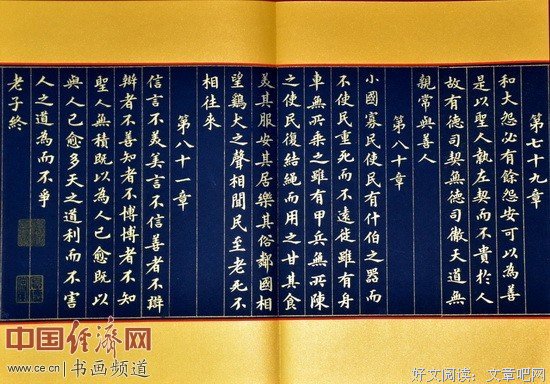 第七十九章
和大怨必有餘怨安可以為善
是以聖人執左契而不責於人
故有德司契無德司徹天道無
親常與善人
第八十章
小國寡民使民有什伯之器而
不使民重死而不遠徙雖有舟
車無所乘之雖有甲兵無所陳
之使民復結繩而用之甘其食
美其服安其居樂其俗鄰國相
望鷄犬之聲相聞民至老死不
相往來
第八十一章
信言不美美言不信善者不辯
辯者不善知者不博博者不知
聖人無積既以為人己愈既以
與人己愈多天之道利而不害
人之道為而不爭
老子終
中国经济网
www.ce.cn 书画频道
好文阅读：文章吧网